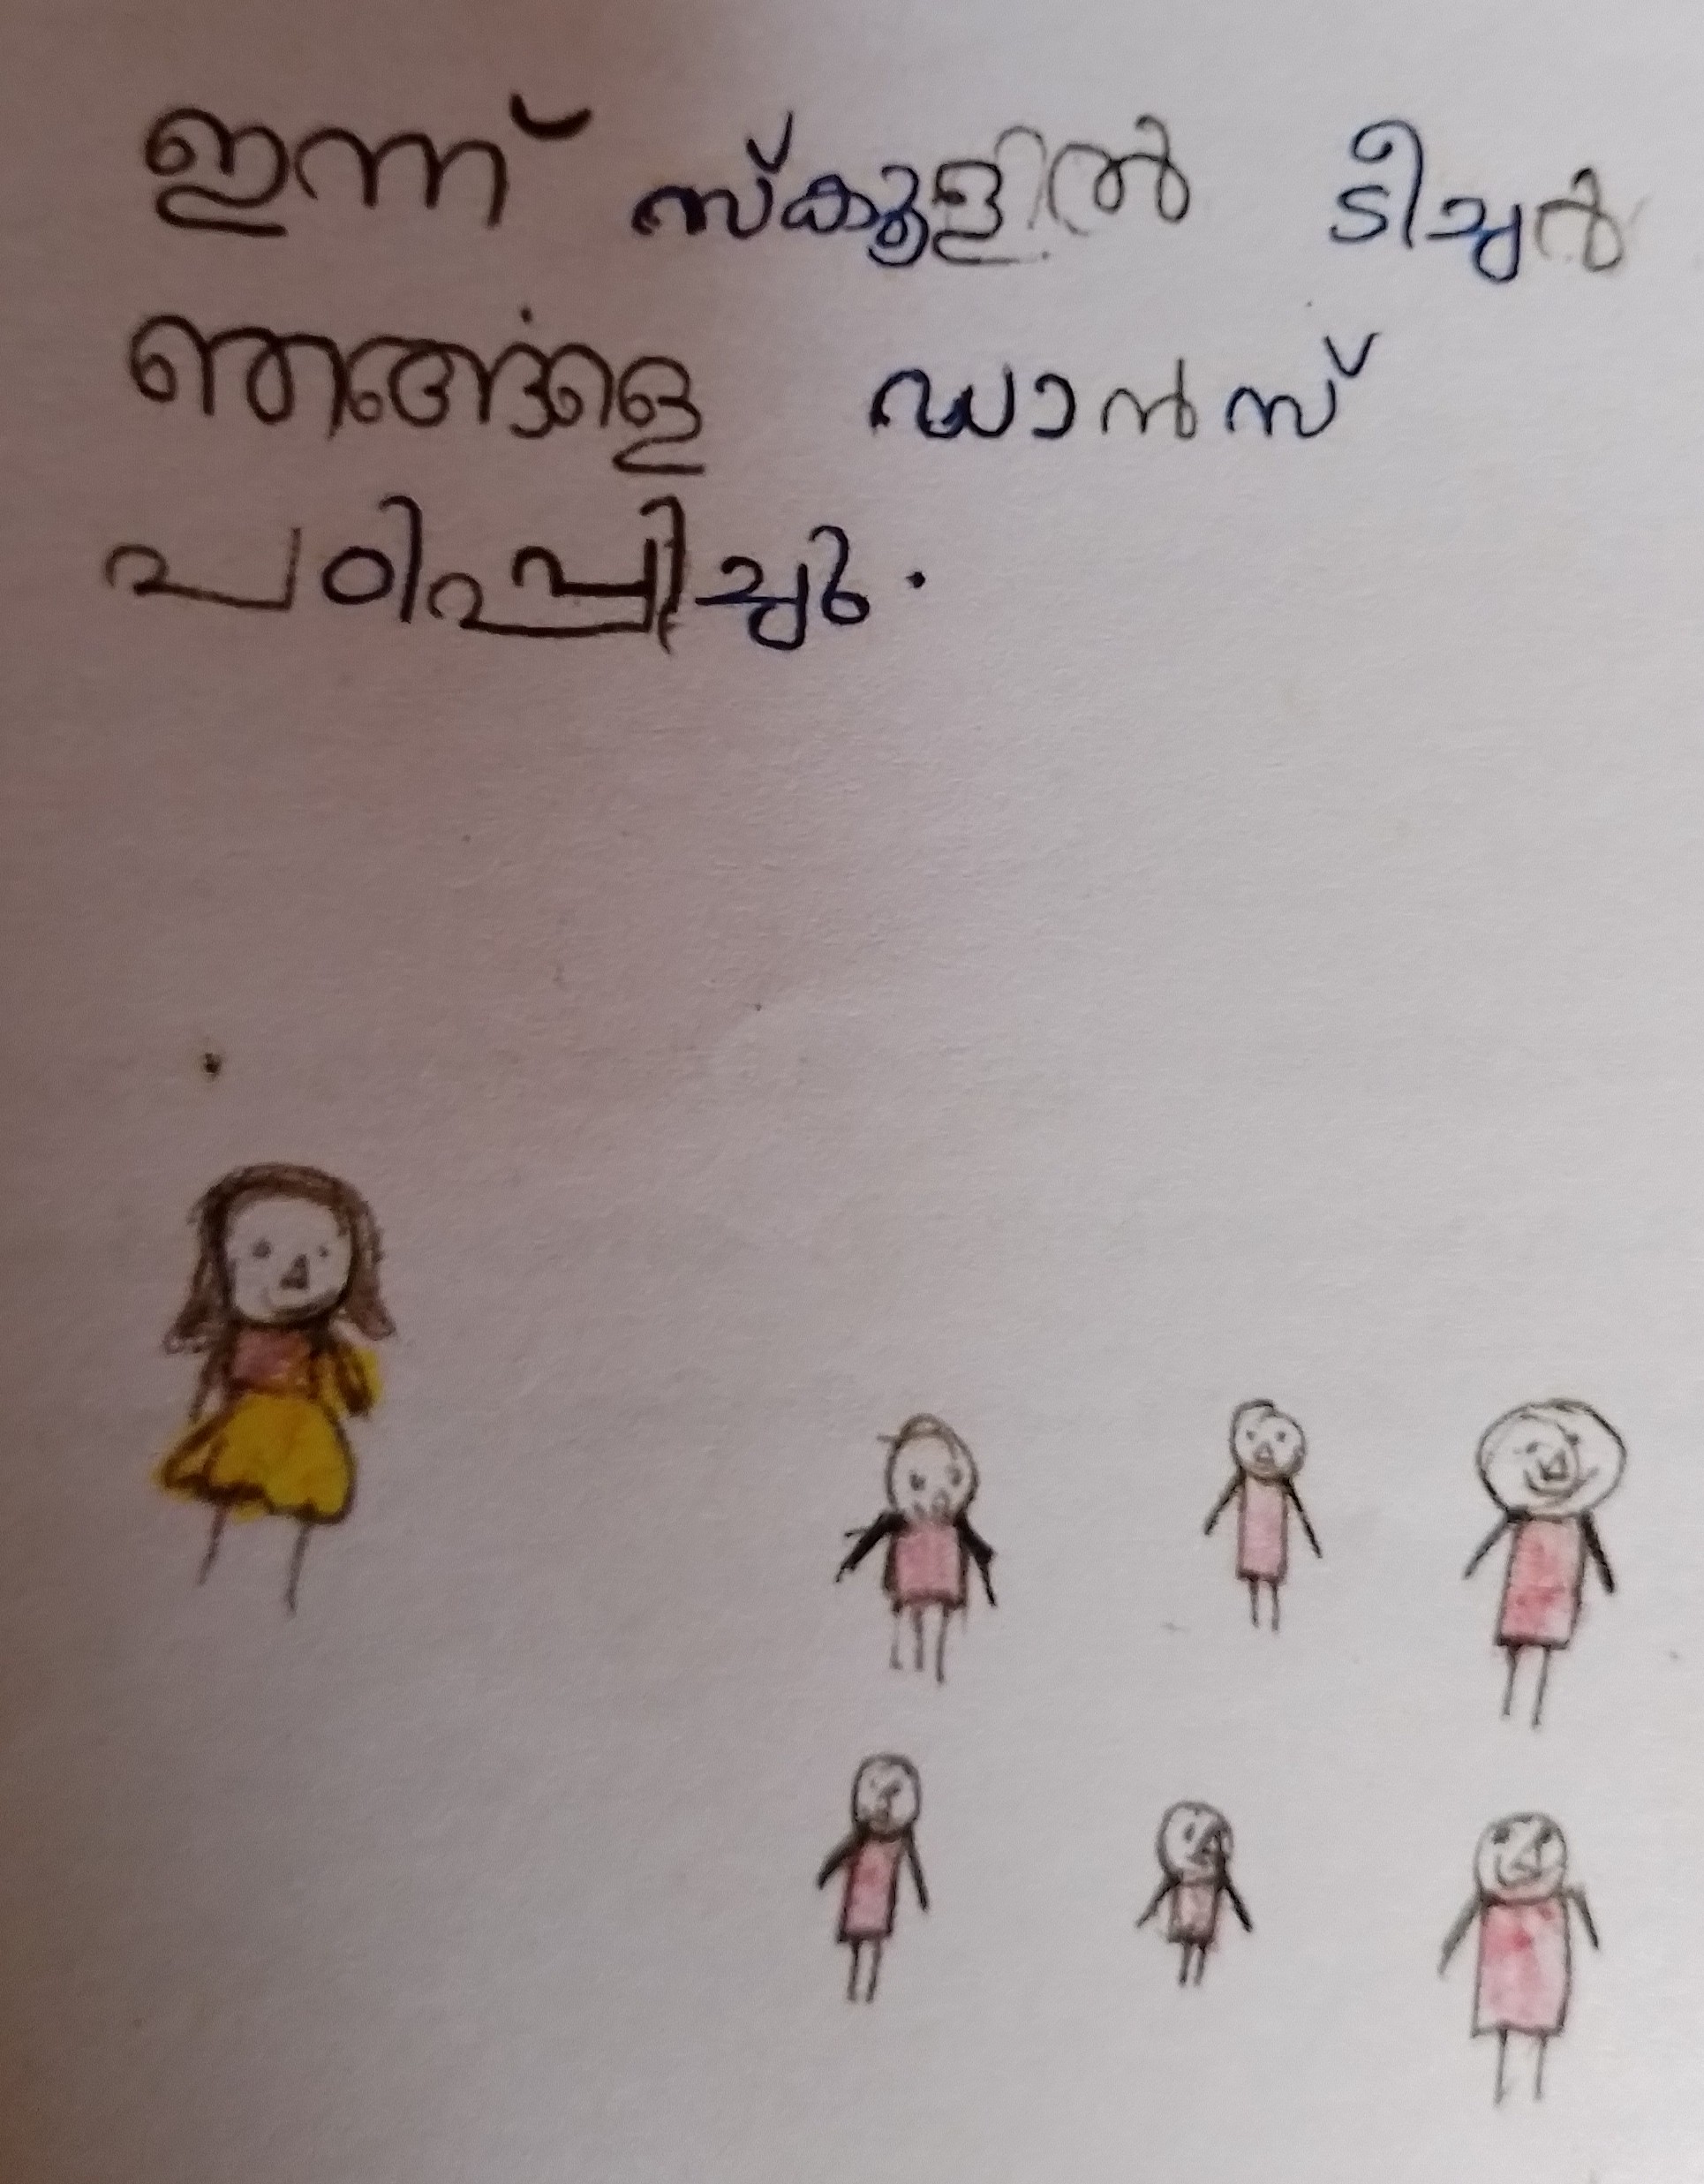 ഇന്ന് സ്കൂളിൽ ടീച്ചർ
ഞങ്ങളെ ഡാൻസ്
പഠിപ്പിച്ചു.